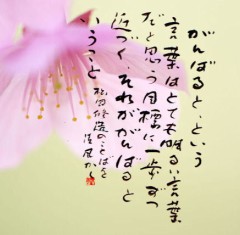 がんばると、という
言葉はとても明るい言葉
だと思う目標に一歩ずつ
近づく、それががんばると
いうこと
松岡修造のことばを